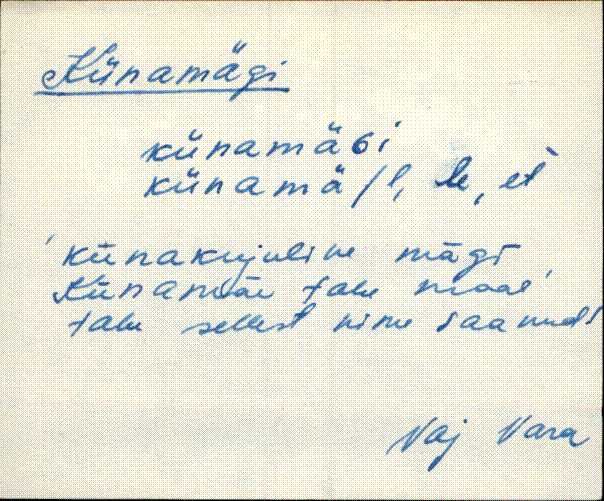 Künamägi
künamäGi
künamä/l, le, et
künakujuline mägi
Künamäe talu maal,
talu sellest nime saanud
Vaj Vara